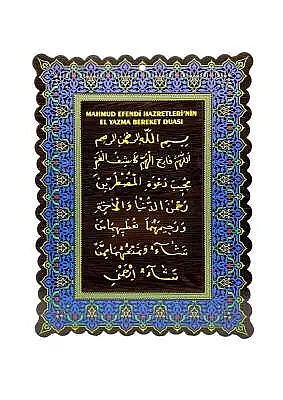 MAHMUD EFENDİ HAZRETLERİ'NİN
EL YAZMA BEREKET DUASI
بسم الله الرحمن الرحيم
اللهم فارج الهم كاشف الغم
مجيب دعوة المضطرين
رحمن الدنيا والآخرة
ورحيمهما
تشاء
تشاء ارحمني